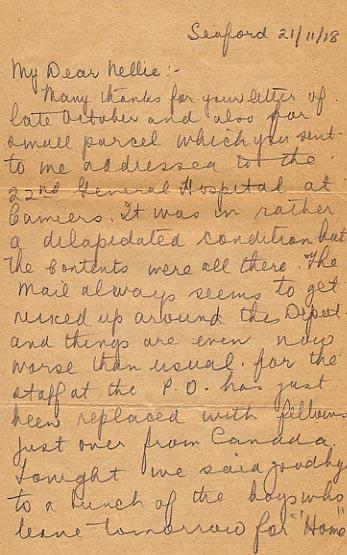 Seaford 21/11/18
My Dear Nellie:-
Many thanks for your letter of
late October and also for
small parcel which you sent
to me addressed to the
22nd General Hospital at
Camiers. It was in rather
a dilapidated condition but
the contents were all there. The
mail always seems to get
mixed up around this Depot
and things are even now
worse than usual. for the
staff at the P.O. has just
been replaced with fellows
just over from Canada.
Tonight we said goodby
to a bunch of the boys who
leave tomorrow for "Home"